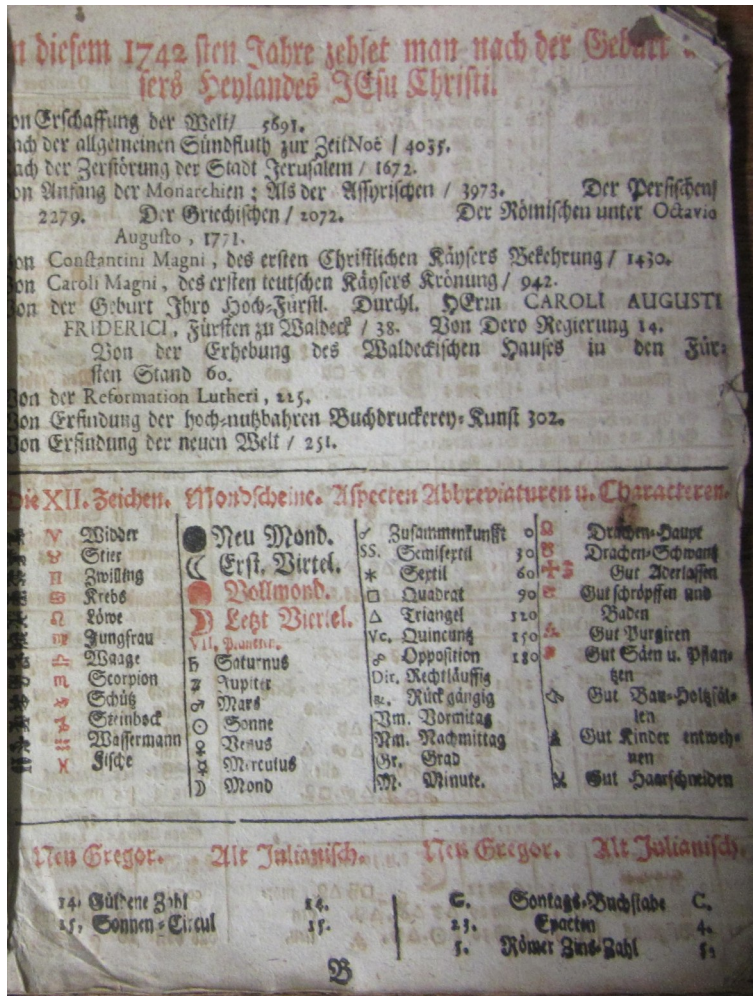 n diesem 1742 sten Jahre zehlet man nach der Geburt
sers Heylandes JEsu Christi.
on Erschaffung der Welt/ 5691.
ach der allgemeinen Sündfluth zur Zeit Noë / 4035.
ach der Zerstörung der Stadt Jerusalem / 1672.
on Anfang der Monarchien; Als der Assyrischen / 3973. Der Persischen/
2279. Der Griechischen / 2072. Der Römischen unter Octavio
Augusto, 1771.
on Constantini Magni, des ersten Christlichen Käysers Bekehrung / 1430.
on Caroli Magni, des ersten teutschen Käysers Krönung / 942.
on der Geburt Ihro Hoch-Fürstl. Durchl. HErrn CAROLI AUGUSTI
FRIDERICI, Fürsten zu Waldeck / 38. Von Dero Regierung 14.
Von der Erhebung des Waldeckischen Hauses in den Für-
sten Stand 60.
Von der Reformation Lutheri, 225.
Von Erfindung der hoch-nutzbahren Buchdruckerey-Kunst 302.
Von Erfindung der neuen Welt / 251.
Die XII. Zeichen. Mondscheine. Aspecten Abbreviaturen u. Characteren.
♈ Widder
♉ Stier
♊ Zwilling
♋ Krebs
♌ Löwe
♍ Jungfrau
♎ Waage
♏ Scorpion
♐ Schütz
♑ Steinbock
♒ Wassermann
♓ Fische
Neu Mond.
Erst. Virtel.
Vollmond.
Letzt Viertel.
VII. Planeten.
♄ Saturnus
♃ Jupiter
♂ Mars
☉ Sonne
♀ Venus
☿ Merculus
☽ Mond
☌ Zusammenkunfft 0
SS. Semisextil 30
⚹ Sextil 60
□ Quadrat 90
△ Triangel 120
Vc. Quincunx 150
☍ Opposition 180
Dir. Rechtläuffig
Rückgängig
Vm. Vormitag
Nm. Nachmittag
Gr. Grad
M. Minute.
☊ Drachen-Haupt
☋ Drachen-Schwantz
Gut Aderlassen
Gut schröpffen und
Baden
Gut Purgiren
Gut Säen u. Pflan-
tzen
Gut Bau-Holtzfäl-
len
Gut Kinder entweh-
nen
Gut Haarschneiden
Neu Gregor. Alt Julianisch. Neu Gregor. Alt Julianisch.
14. Güldene Zahl 14.
15. Sonnen-Circul 15.
G. Sontags-Buchstabe C.
23. Epacten 4.
5. Römer Zins-Zahl 5.
B